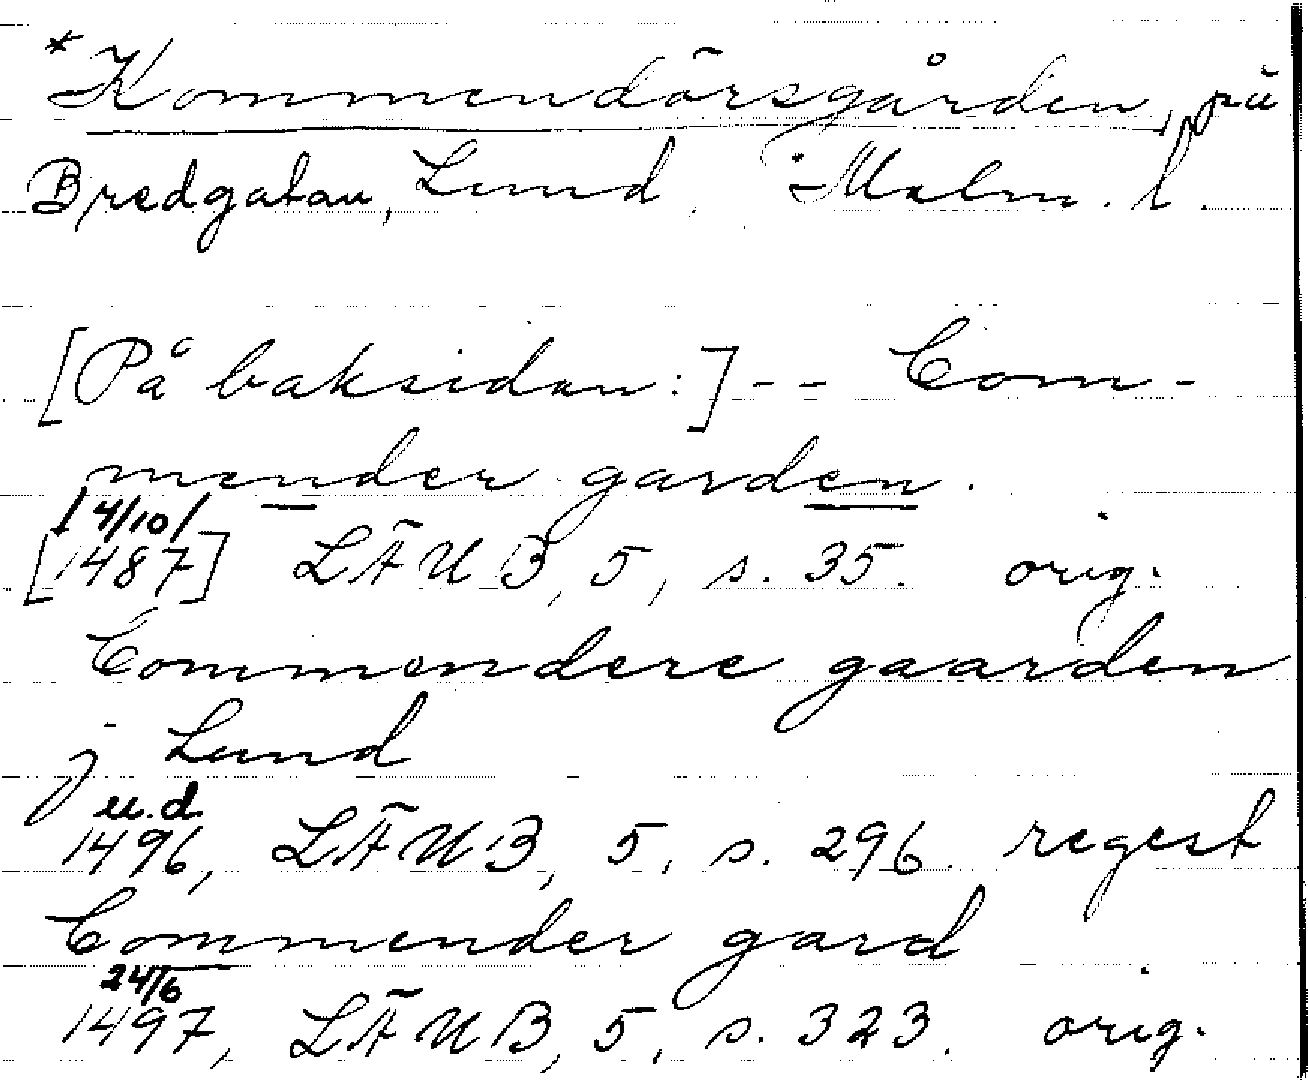 *Kommendörsgården, på
Bredgatan, Lund. Malm. l.
[På baksidan:] -- Com-
mender garden.
/4/10/
[1487] LÄUB, 5, s. 35. orig.
Commendere gaarden
j Lund
u.d.
1496, LÄUB, 5, s. 296. regest
Commender gard
24/6
1497, LÄUB, 5, s. 323. orig.